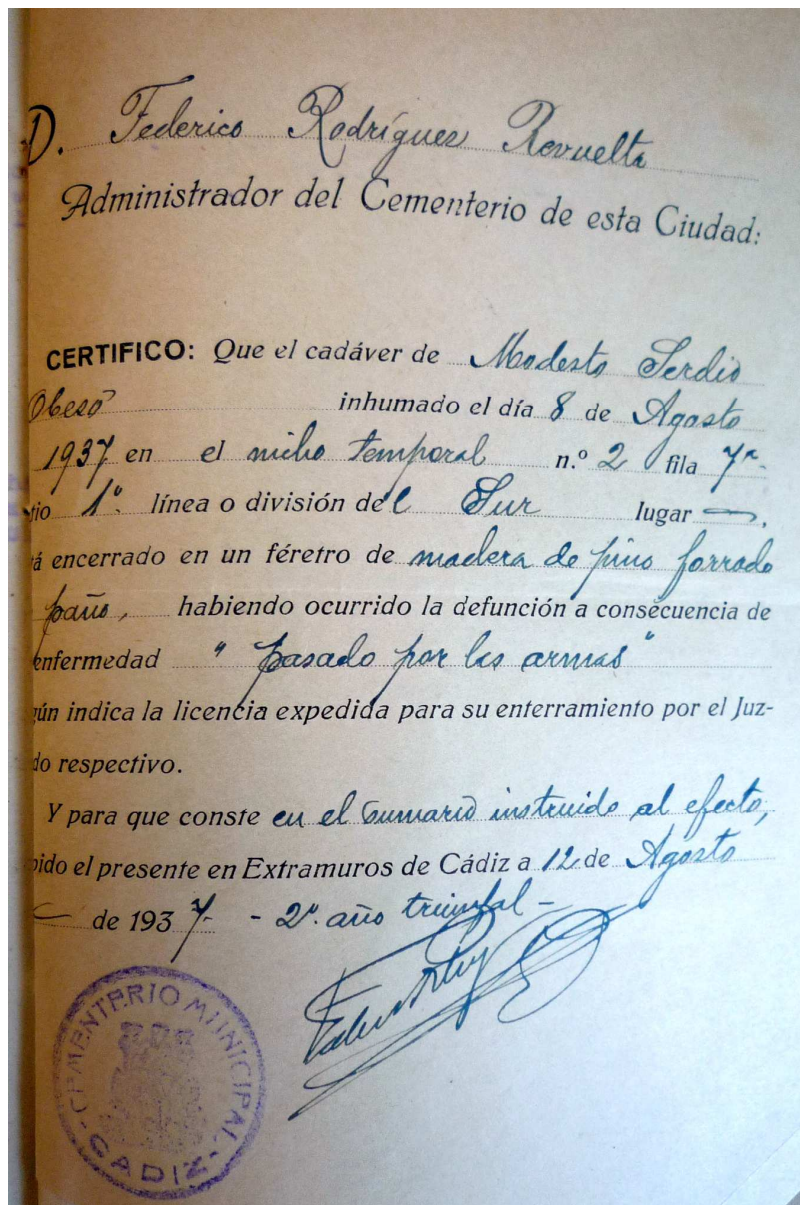 D. Federico Rodríguez Revuelta
Administrador del Cementerio de esta Ciudad:
CERTIFICO: Que el cadáver de Modesto Serdio
Obeso inhumado el día 8 de Agosto
1937 en el nicho temporal n.º 2 fila 7ª
tio 1º línea o división del Sur lugar —.
á encerrado en un féretro de madera de pino forrado
paño, habiendo ocurrido la defunción a consecuencia de
enfermedad "pasado por las armas"
gún indica la licencia expedida para su enterramiento por el Juz-
do respectivo.
Y para que conste en el sumario instruido al efecto,
pido el presente en Extramuros de Cádiz a 12 de Agosto
— de 1937 - 2º. año triunfal -
CEMENTERIO MUNICIPAL
- CADIZ -